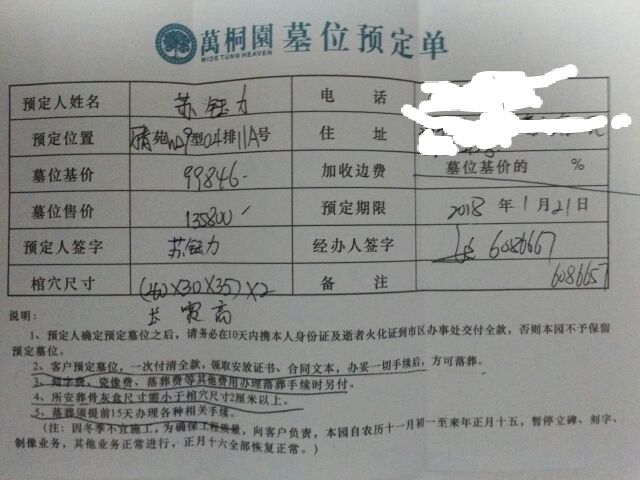 萬桐園 墓位预定单
WIDE TUNG HEAVEN
预定人姓名 苏钰力 电 话
预定位置 苑 9型04排11A号 住 址
墓位基价 99846- 加收边费 墓位基价的 %
墓位售价 135800 预定期限 2018年1月21日
预定人签字 苏钰力 经办人签字 6086667
棺穴尺寸 (40×30×35)×2 备 注 6086657
长 宽 高
说明：
1、预定人确定预定墓位之后，请务必在10天内携本人身份证及逝者火化证到市区办事处交付全款，否则本园不予保留
预定墓位。
2、客户预定墓位，一次付清全款，领取安放证书、合同文本，办妥一切手续后，方可落葬。
3、刻字费、瓷像费、落葬费等其他费用办理落葬手续时另付。
4、所安葬骨灰盒尺寸需小于棺穴尺寸2厘米以上。
5、落葬须提前15天办理各种相关手续。
（注：因冬季不宜施工，为确保工程质量，向客户负责，本园自农历十一月初一至来年正月十五，暂停立碑、刻字、
制像业务，其他业务正常进行，正月十六全部恢复正常。）